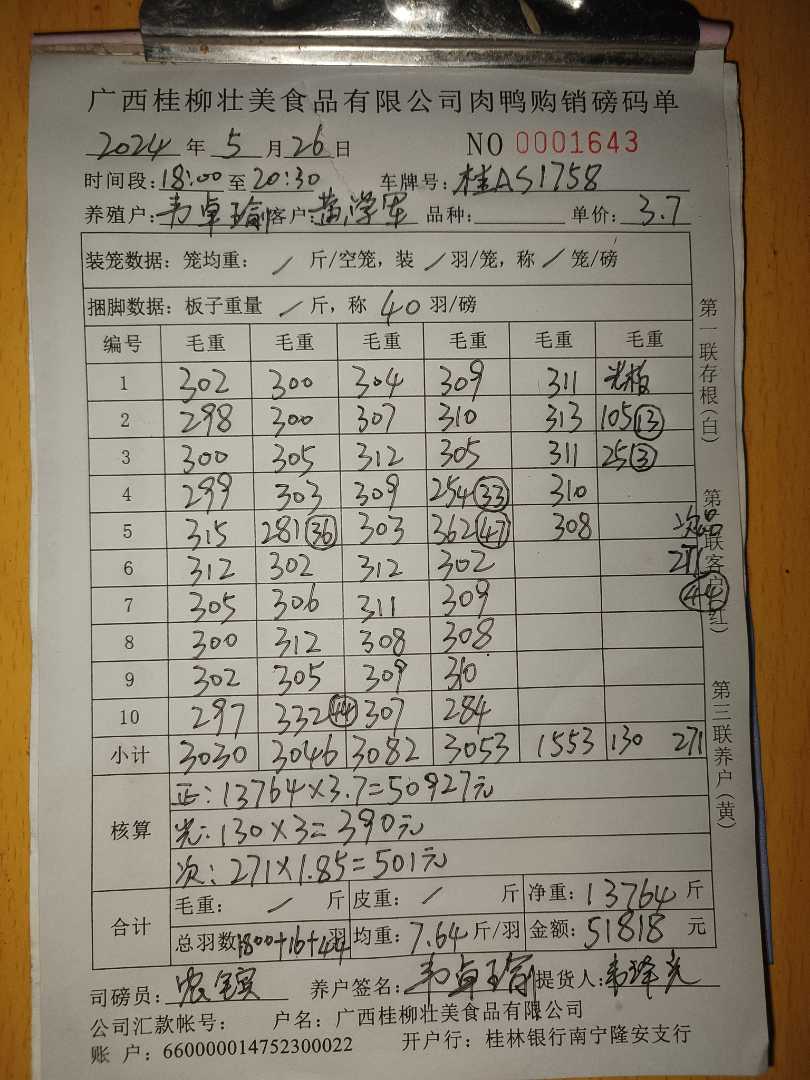 广西桂柳壮美食品有限公司肉鸭购销磅码单
2024 年 5 月 26 日 NO 0001643
时间段：18:00 至 20:30 车牌号：桂AS1758
养殖户：韦卓瑜 客户：黄学军 品种： 单价：3.7
装笼数据：笼均重： / 斤/空笼，装 / 羽/笼，称 / 笼/磅
捆脚数据：板子重量 / 斤，称 40 羽/磅
编号 毛重 毛重 毛重 毛重 毛重 毛重
1 302 300 304 309 311 光板
2 298 300 307 310 313 105 13
3 300 305 312 305 311 25 3
4 299 303 309 254 33 310
5 315 281 36 303 362 47 308 次品
6 312 302 312 302 271
7 305 306 311 309 44
8 300 312 308 308
9 302 305 309 310
10 297 332 44 307 284
小计 3030 3046 3082 3053 1553 130 271
核算
正：13764×3.7=50927元
光：130×3=390元
次：271×1.85=501元
合计
毛重： / 斤 皮重： / 斤 净重：13764 斤
总羽数 1800+16+44 羽 均重：7.64 斤/羽 金额：51818 元
司磅员： 养户签名：韦卓瑜 提货人：
公司汇款帐号： 户名：广西桂柳壮美食品有限公司
账 户：660000014752300022 开户行：桂林银行南宁隆安支行
第一联存根（白）
第二联客户（红）
第三联养户（黄）